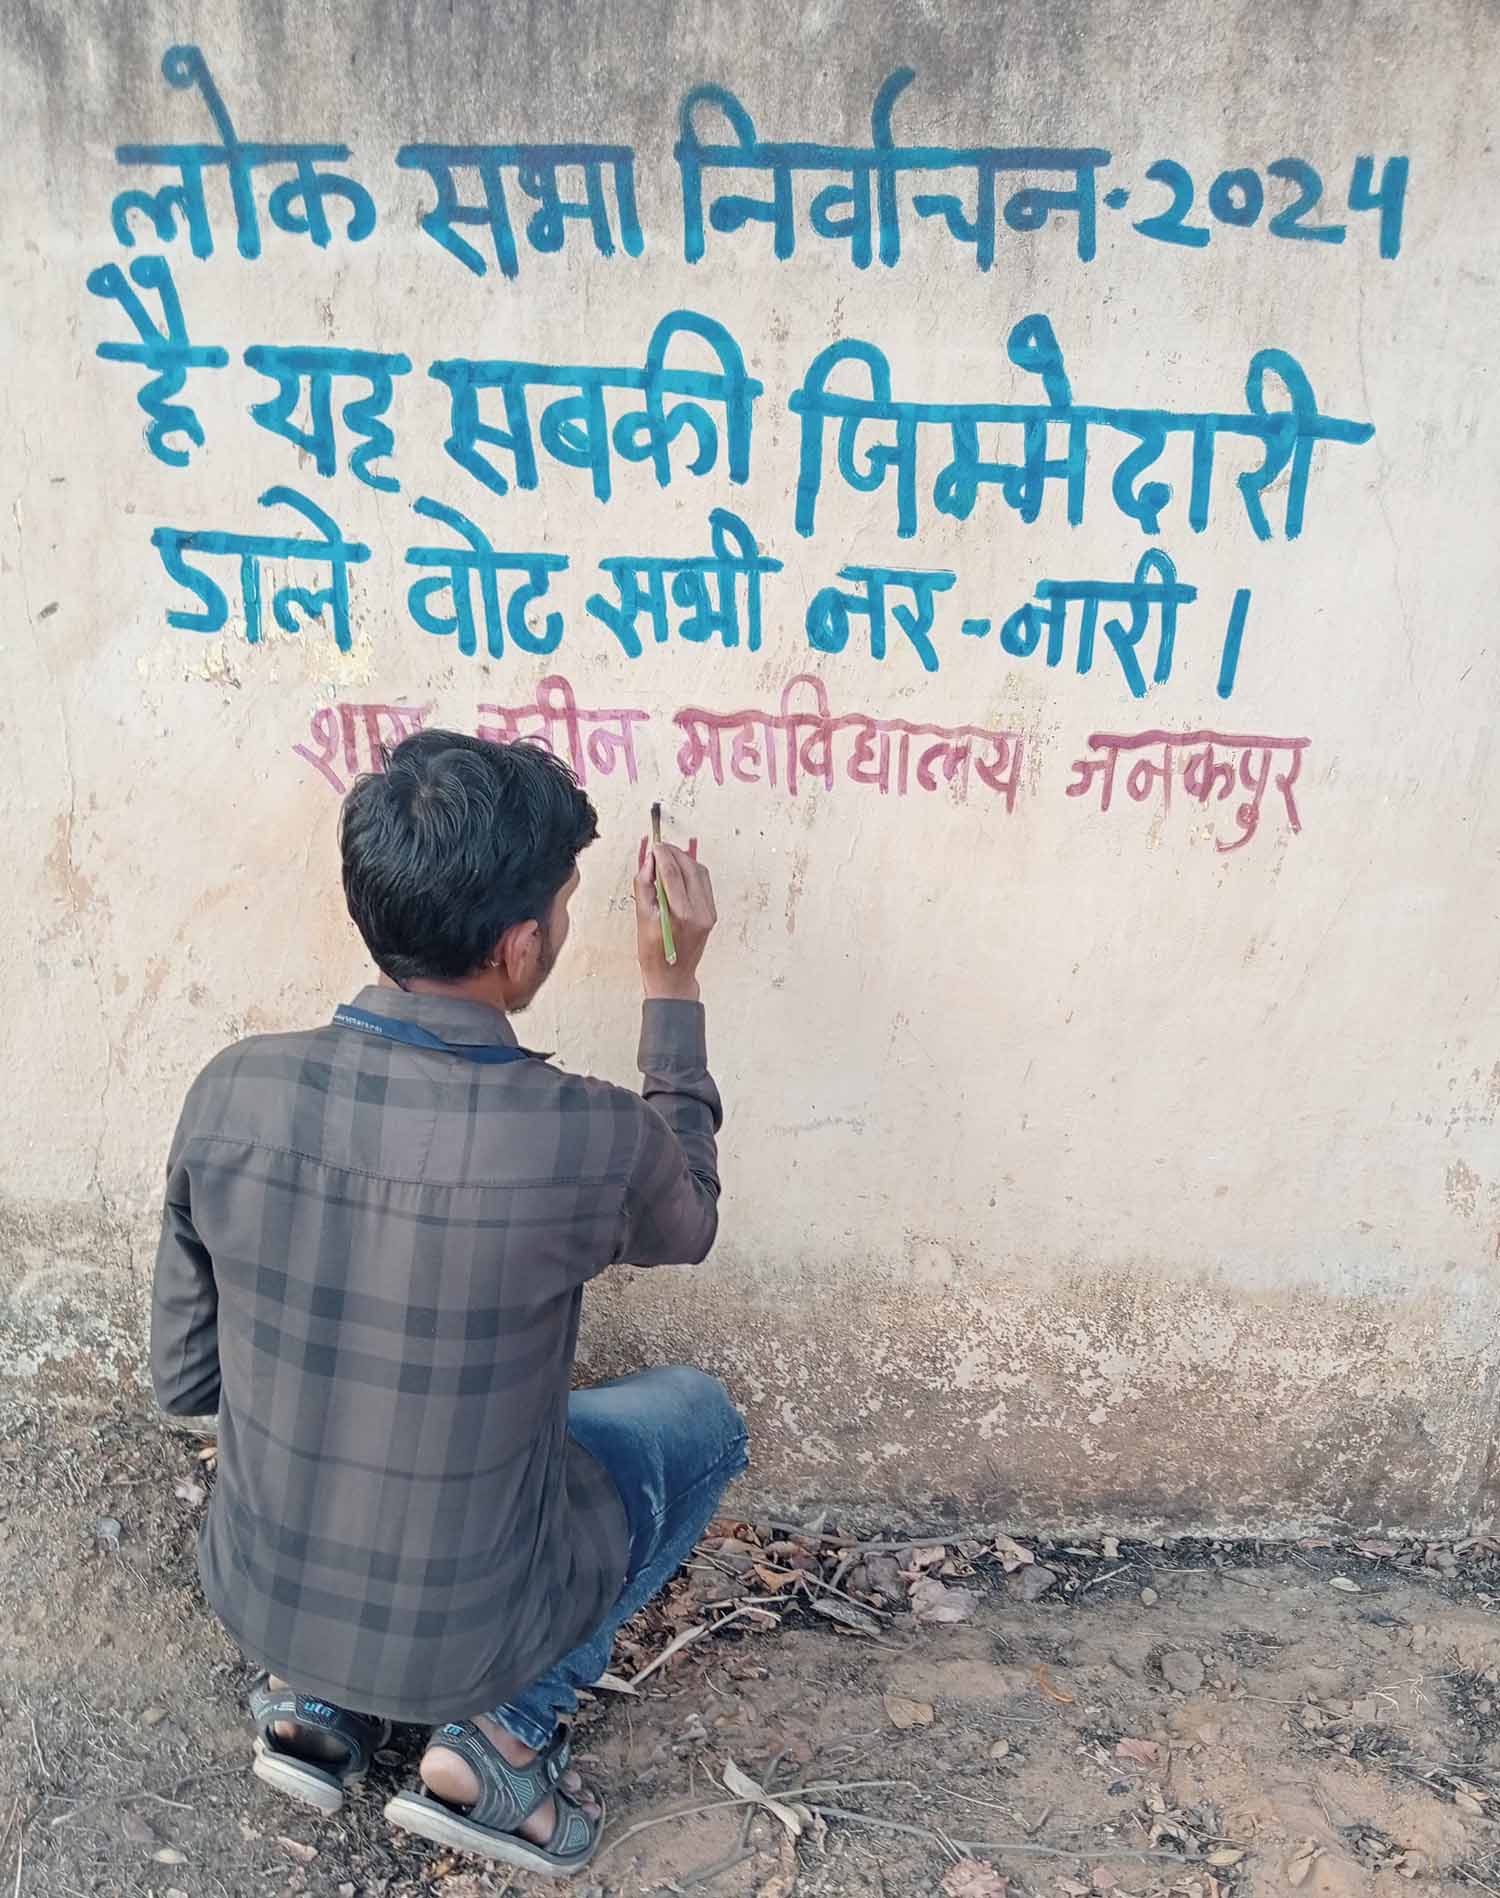 लोक सभा निर्वाचन-2024
है यह सबकी जिम्मेदारी
डाले वोट सभी नर-नारी।
शास. नवीन महाविद्यालय जनकपुर